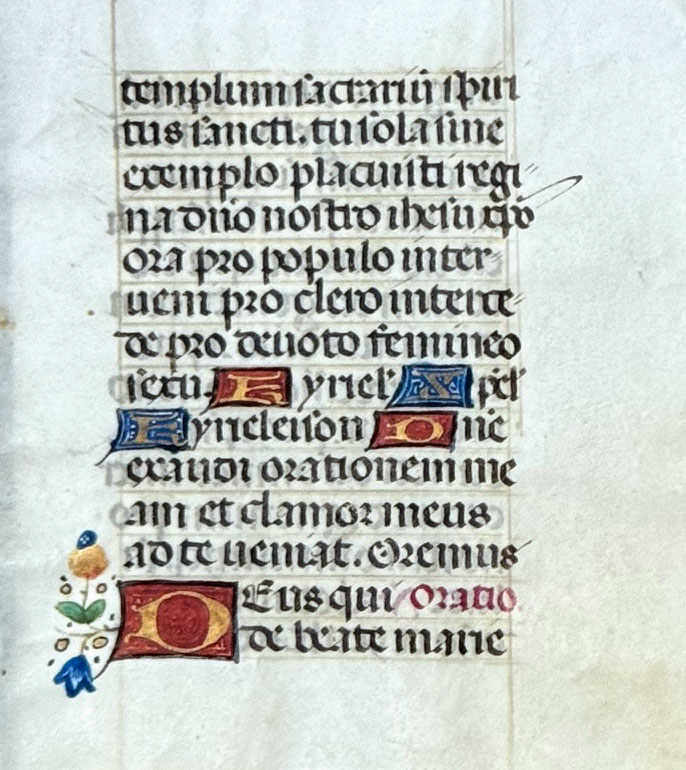 templum sacrariũ spiri
tus sancti. tu sola sine
exemplo placuisti regi
na dño nostro ihesu xp̃o
ora pro populo inter
ueni pro clero interce
de pro deuoto femineo
sexu. Kyriel' Xpel'
Kyrieleison Dñe
exaudi orationem me
am et clamor meus
ad te ueniat. Oremus
Deus qui Oratio
de beate marie